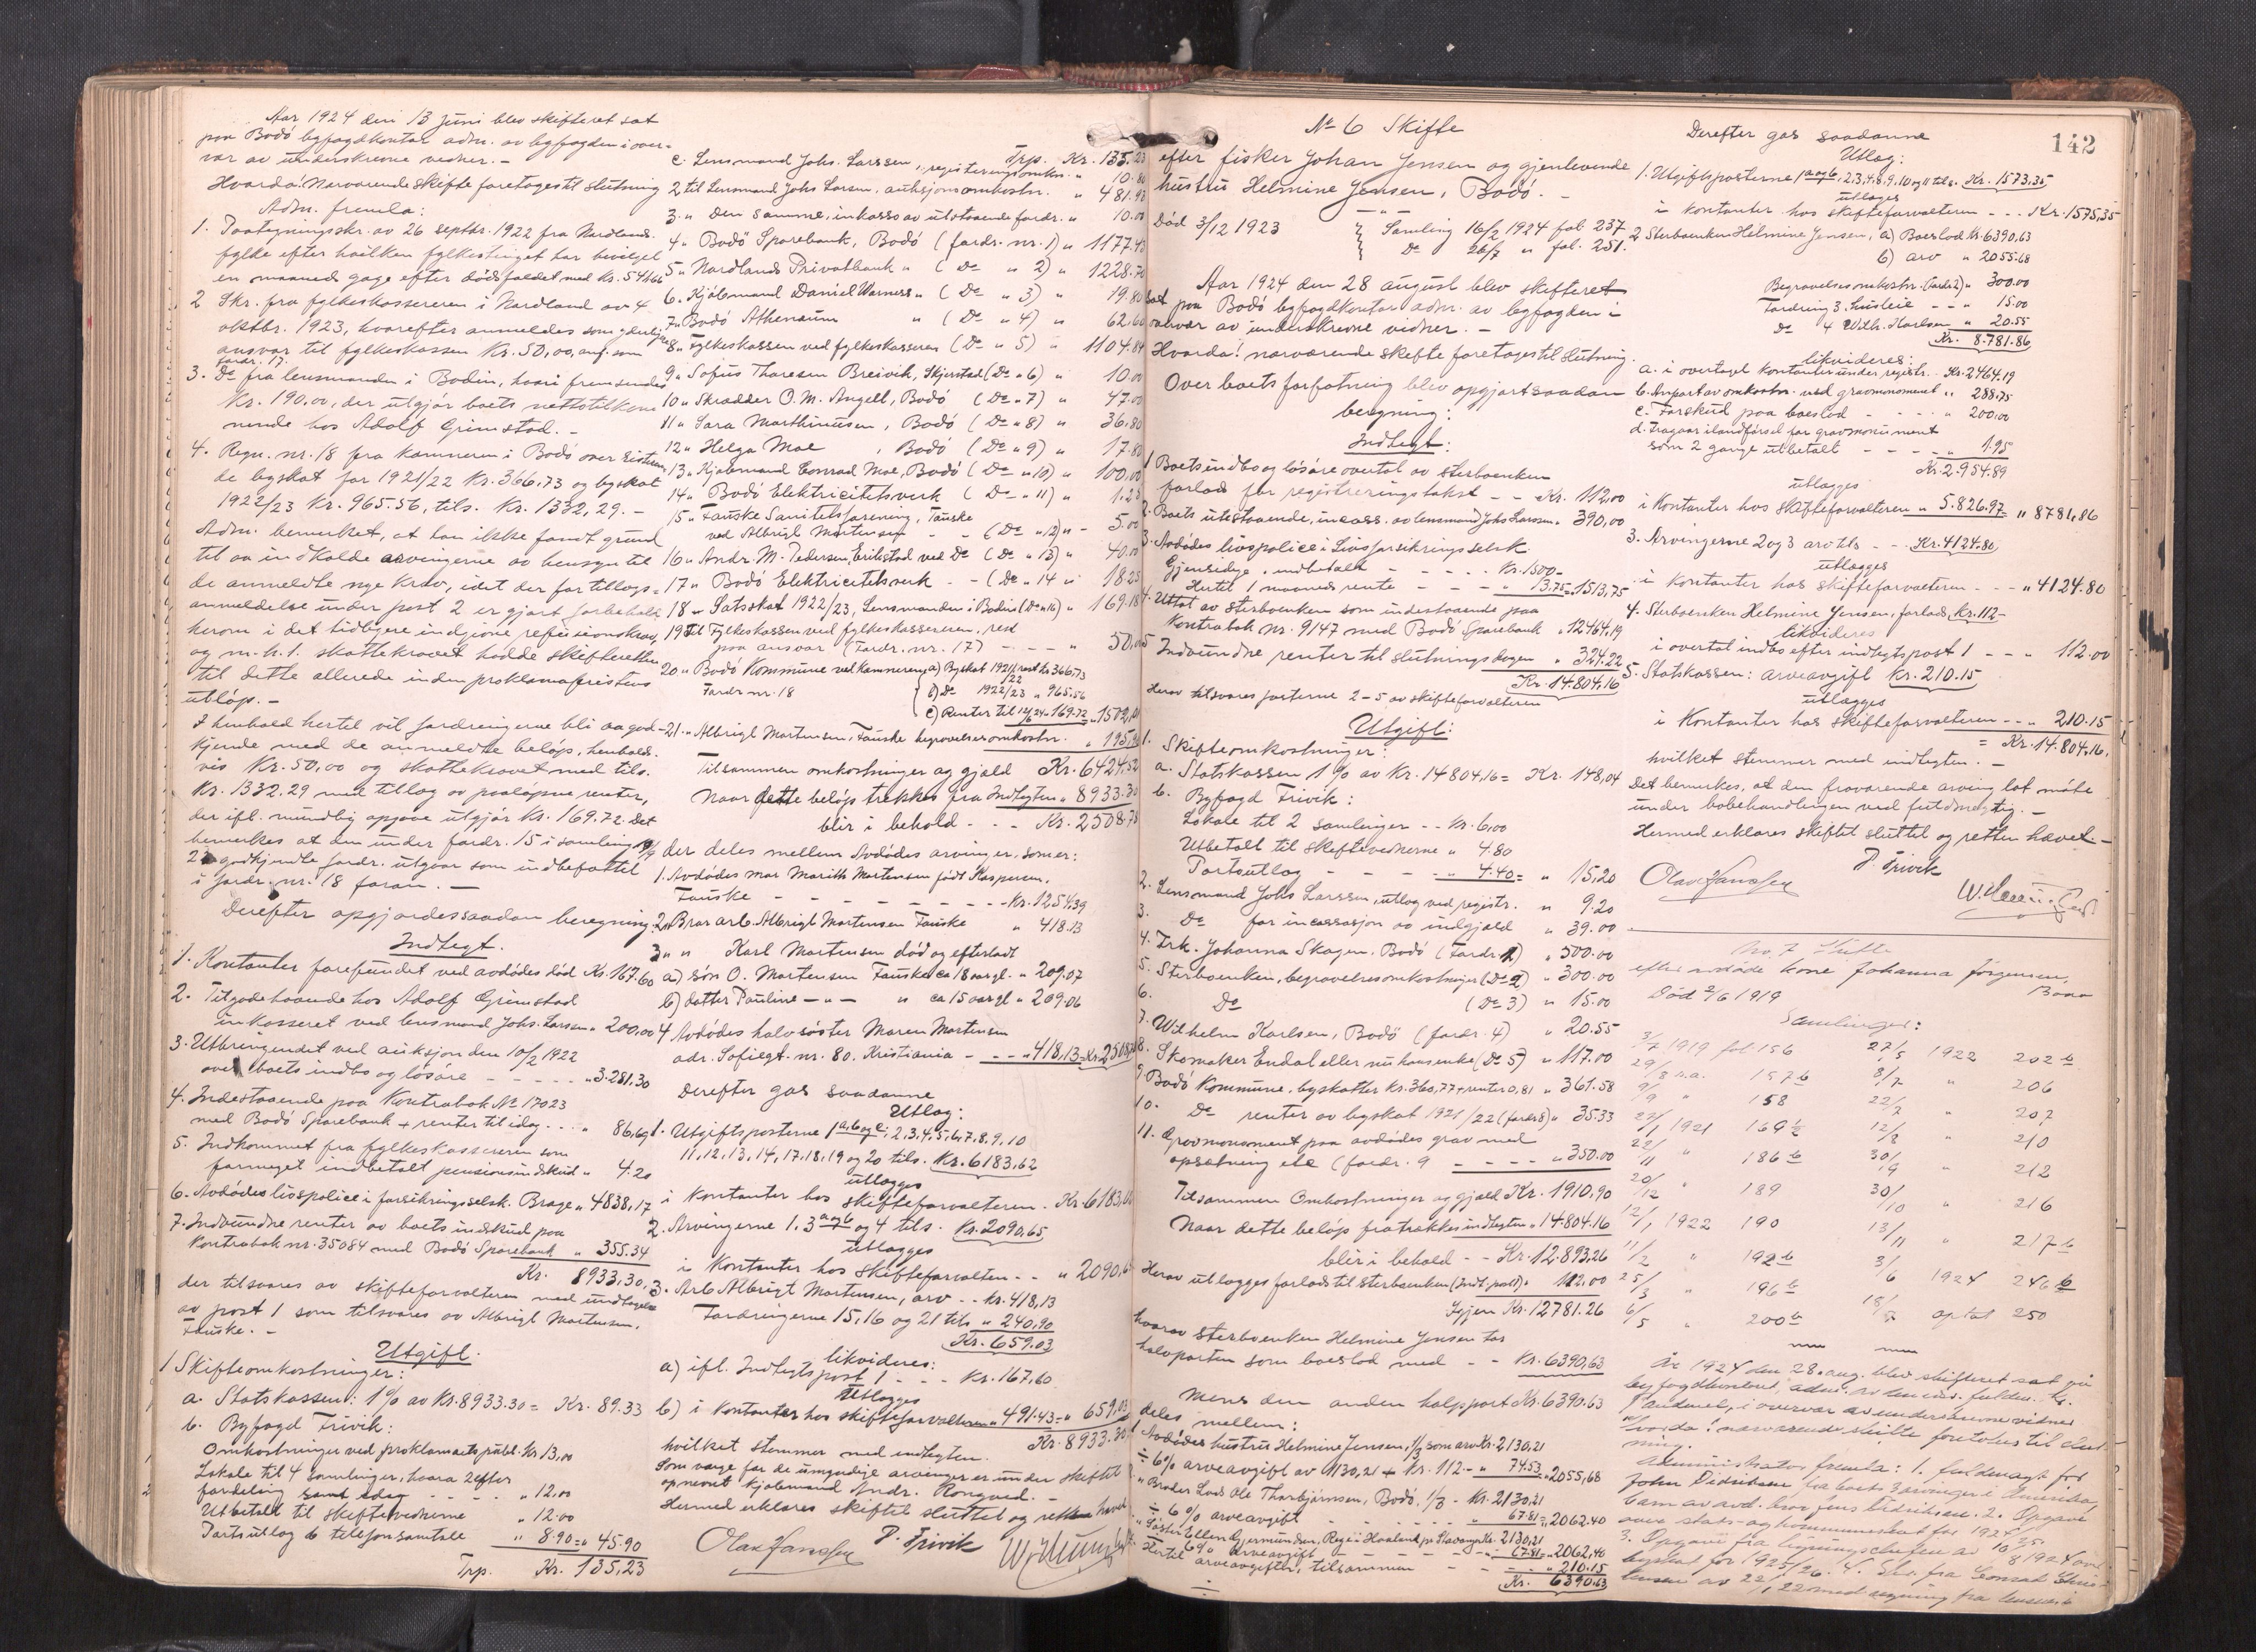 Aar 1924 den 13 juni blev skifteret sat
paa Bodö byfogdkontor adm. av byfogden i over-
vær av underskrevne vidner. –
Hvorda! Nærværende skifte foretoges til slutning
Adm. fremla:
1. Paategningsskr. av 26 septbr. 1922 fra Nordlands
fylke efter hvilken fylkestinget har bevilget
en maaneds gage efter dödsfaldet med Kr. 541.66
2 Skr. fra fylkeskassereren i Nordland av 4
oktbr. 1923, hvorefter anmeldes som
ansvar til fylkeskassen Kr. 50,00, anf. som
fordr. 17.
3. Do fra lensmanden i Bodin, hvori fremsendes
Kr. 190.00, der utgjör boets nettotilkom
mende hos Adolf Grimstad. –
4. Regn. nr. 18 fra kæmneren i Bodö over resteren
de byskat for 1921/22 Kr. 366,73 og byskat
1922/23 Kr. 965.56, tils. Kr. 1332,29. –
Adm. bemerket, at han ikke fandt grund
til aa indkalde arvingerne av hensyn til
de anmeldte nye krav, idet der for tillægs-
anmeldelse under post 2 er gjort forbehold
herom i det tidligere indgivne refusionskrav,
og m. h. t. skattekravet hadde skifteretten
til dette allerede inden proklamafristens
utlöp. –
I henhold hertil vil fordringerne bli aa god-
kjende med de anmeldte belöp, henholds-
vis Kr. 50,00 og skattekravet med tils.
Kr. 1332.29 med tillæg av paalöpne renter,
der ifl. mundtlig opgave utgjör Kr. 169.72. Det
bemerkes at den under fordr. 15 i samling
22 godkjendte fordr. utgaar som indbefattet
i fordr. nr. 18 foran. –
Derefter opgjordes saadan beregning:
Indtægt.
1. Kontanter forefundet ved avdödes död Kr. 167.60
2. Tilgodehavende hos Adolf Grimstad
inkasseret ved lensmand Johs. Larssen " 200,00
3. Utbringendet ved auksjon den 10/2 1922
over boets indbo og lösöre – – – – – " 3.281,30
4. Indestaaende paa Kontrabok No 17023
med Bodö Sparebank + renter til idag . . . " 86,69
5. Indkommet fra fylkeskassereren som
formeget indbetalt pensionsindskud " 4.20
6. Avdödes livspolice i forsikringsselsk. Brage " 4838,17
7. Indvundne renter av boets indskud paa
Kontrabok nr. 35084 med Bodö Sparebank " 355.34
Kr. 8933,30,
der tilsvares av skifteforvalteren med undtagelse
av post 1 som tilsvares av Albrigt Mortensen,
Fauske. –
Utgift.
1 Skifteomkostninger:
a. Statskassen: 1% av Kr. 8933.30 = Kr. 89.33
b. Byfogd Trivik:
Omkostninger ved proklamaets publ. Kr. 13,00
Lokale til 4 samlinger, hvorav 2 efter
fordeling samt idag – – – – " 12.00
Utbetalt til skiftevidnerne " 12.00
Portoutlæg & telefonsamtale " 8.90 = " 45.90
Trp. Kr. 135,23
Trp. Kr. 135.23
c. Lensmand Johs. Larssen, registeringsomkn. " 10.80
2 til Lensmand Johs Larsen, auksjonsomkostn. " 481.93
3. " Den samme, inkasso av utestaaende fordr. " 10.00
4 " Bodö Sparebank, Bodö (fordr. nr. 1) " 1177.43
5 " Nordlands Privatbank " (Do " 2) " 1228.70
6. " Kjöbmand Daniel Warness " (Do " 3) " 19.80
7 " Bodö Athenæum " (Do " 4) " 62.60
8 " Fylkeskassen ved fylkeskassereren (Do " 5) " 1104.84
9 " Sofus Thoresen Breivik, Skjerstad (Do " 6) " 10.00
10 " Skrædder O. M. Angell, Bodö (Do " 7) " 47.00
11 " Sara Marthinusen, Bodö (Do " 8) " 36.80
12 " Helga Moe , Bodö (Do " 9) " 17.80
13 " Kjöbmand Conrad Moe, Bodö (Do " 10) " 100,00
14 " Bodö Elektricitetsverk (Do " 11) " 1.25
15 " Fauske Sanitetsforening, Fauske
ved Albrigt Mortensen – – (Do " 12) " 5.00
16 " Andr. M. Pedersen, Erikstad ved Do (Do " 13) " 40.00
17 " Bodö Elektricitetsverk – – (Do " 14 " 18.25
18 – Satsskat 1922/23, Lensmanden i Bodin (Do " 16) " 169.18
19 Til Fylkeskassen ved fylkeskassereren, rest
paa ansvar (Fordr. nr. 17) – – – – " 50,00
20 " Bodö Kommune ved kæmneren a) Byskat 1921/22 rest kr 366,73
Fordr nr. 18 b) Do 1922/23 " 965.56
c) Renter til 12/6 24 " 169.72 = " 1502,01
21. " Albrigt Mortensen, Fauske begravelsesomkostn. " 195,90
Tilsammen omkostninger og gjæld Kr. 6424,52
Naar dette belöp trækkes fra Indtægten " 8933.30
blir i behold – – Kr. 2508.78
der deles mellem Avdödes arvinger, som er:
1. Avdödes mor Marith Mortensen födt Kaspersen,
Fauske – – – – – – – – Kr. 1254.39
2. Bror arb. Albrigt Mortensen Fauske " 418.13
3 " " Karl Mortensen död og efterlatt
a) sön O. Mortensen Fauske ca 18 aar gl. " 209.07
b) datter Pauline – " – " ca 15 aar gl " 209.06
4 Avdödes halvsöster Maren Mortensen
adr. Sofiegt. nr. 80. Kristiania – – – – " 418,13 = Kr. 2508,78
Derefter gas saadanne
Utlæg:
1. Utgiftsposterne 1 a, b og c, 2, 3, 4, 5, 6, 7, 8, 9, 10
11, 12, 13, 14, 17, 18, 19 og 20 tils. Kr. 6183,62
utlægges
i Kontanter hos skifteforvalteren. Kr. 6183,62
2. Arvingerne 1. 3 a og b og 4 tils. Kr. 2090,65
utlægges
i Kontanter hos Skifteforvalten – – " 2090,65
3. Arb Albrigt Mortensen, arv – – Kr. 418,13
Fordringerne 15, 16 og 21 tils " 240,90
Kr. 659,03
likvideres:
a) ifl. Indtægtspost 1 – – – Kr. 167,60
Utlægges
b) i kontanter hos skifteforvalteren " 491.43 = " 659,03
Kr. 8933.30,
hvilket stemmer med indtægten.
Som værge for de umyndige arvinger er under skiftet
opnevnt kjöbmand Andr. Rongved. –
Hermed erklæres skiftet sluttet og retten hævet
Olav Hanssen P. Trivik
142
No 6 Skifte
efter fisker Johan Jensen og gjenlevende
hustru Helmine Jensen, Bodö. –
Död 3/12 1923 Samling 16/2 1924 fol. 237
Do 26/7 " fol. 251.
Aar 1924 den 28 august blev skifteret
sat paa Bodö byfogdkontor adm. av byfogden i
overvær av underskrevne vidner. –
Hvorda! nærværende skifte foretoges til slutning.
Over boets forfatning blev opgjort saadan
beregning:
Indtægt:
1 Boets indbo og lösöre overtat av sterboenken
forlods for registreringstakst – – Kr. 112,00
2. Boets utestaaende, incass. av lensmand Johs Larssen " 390,00
3. Avdödes livspolice i Livsforsikringsselsk
Gjensidige, indbetalt – – – – – Kr. 1500 –
Hertil 1 maaneds rente – – – " 13.75 = " 1513,75
4. Uttat av sterboenken som indestaaende paa
Kontrabok nr. 9147 med Bodö Sparebank " 12464.19
5 Indvundne renter til slutningsdagen " 324.22
Kr. 14.804,16
Herav tilsvares posterne 2–5 av skifteforvalteren
Utgift:
1. Skifteomkostninger:
a. Statskassen 1% av Kr. 14804,16 = Kr. 148,04
b. Byfogd Trivik:
Lokale til 2 samlinger – – Kr. 6,00
Utbetalt til skiftevidnerne " 4.80
Portoutlæg – – – – – " 4.40 = " 15,20
2. Lensmand Johs Larssen, utlæg ved registr. " 9.20
3. Do for incassasjon av indgjæld " 39.00
4. Frk. Johanna Skagen, Bodö (Fordr. 1) " 500.00
5. Sterboenken, begravelsesomkostninger (Do 2) " 300.00
6. Do (Do 3) " 15.00
7. Wilhelm Karlsen, Bodö (fordr. 4) " 20.55
8. Skomaker Endal eller nu hans enke (Do 5) " 117.00
9. Bodö Kommune, byskatter kr. 360,77 + renter 0,81 " 361.58
10. Do renter av byskat 1921/22 (fordr 8) " 35.33
11. Gravmonument paa avdödes grav med
opsætning etc (fordr. 9 – – – – " 350.00
Tilsammen Omkostninger og gjæld Kr. 1910,90
Naar dette belöp fratrækkes indtægten " 14.804.16
blir i behold – – Kr. 12.893,26
Herav utlægges forlods til sterboenken (Indt. post 1) " 112.00
Igjen Kr. 12781.26
hvorav sterboenken Helmine Jensen tar
halvparten som boeslod med – – Kr. 6390,63
Mens den anden halvpart Kr. 6390.63
deles mellem:
1 Avdödes hustru Helmine Jensen, 1/3 som arv Kr. 2130,21
÷ 6% arveavgift av 1130,21 + Kr. 112 – " 74.53 = " 2055,68
" Broder Lods Ole Thorbjörnsen, Bodö, 1/3 – Kr. 2130,21
÷ 6% arveavgift " 67.81 = " 2062.40
" Söster Ellen Gjermundsen, Rege i Haaland pr Stavanger Kr. 2130,21
6% arveavgift – – – – " 67.81 = " 2062,40
Hertil arveavgifter, tilsammen – – " 210.15
Kr. 6390.63
Derefter gas saadanne
Utlæg:
1. Utgiftsposterne 1 a og b, 2, 3, 4, 8, 9, 10 og 11 tils. Kr. 1573,35
utlæges
i kontanter hos skifteforvalteren – – – Kr. 1575,35
2 Sterboenken Helmine Jensen, a) Boeslod Kr. 6390,63
b) arv " 2055.68
Begravelsesomkostn. (Fordr 2) " 300.00
Fordring 3. Husleie – – " 15.00
Do 4 Wilh. Karlsen " 20.55
Kr. 8.781.86
likvideres:
a. i overtagt kontanter under registr. Kr. 2464.19
b. Anpart av omkostn. ved gravmonument " 288,75
c. Forskud paa boeslod – – – – " 200.00
d. Fragt & ilandförsel for gravmonument
som 2 gange utbetalt – – – – " 1.95
Kr. 2.954.89
utlægges
i Kontanter hos skifteforvalteren " 5.826.97 = " 8781,86
3. Arvingerne 2 og 3 arv tils – – Kr. 4124.80
utlægges
i kontanter hos skifteforvalteren – – – " 4124.80
4. Sterboenken Helmine Jensen, forlods, Kr. 112 –
likvideres
i overtat indbo efter indtægtspost 1 – – – " 112.00
5. Statskassen: arveavgift Kr. 210.15
utlægges
i Kontanter hos skifteforvalteren – – – " 210.15
= Kr. 14.804,16,
hvilket stemmer med indtægten. –
Det bemerkes, at den fraværende arving lot möte
under bobehandlingen ved fuldmægtig. –
Hermed erklæres skiftet sluttet og retten hævet –
Olav Hanssen P. Trivik
No. 7 Skifte
efter avdöde kone Johanna Jörgensen,
Bodö
Död 2/6 1919
Samlinger:
3/7 1919 fol 156 27/5 1922 202 b
29/8 s.a. 157 b 8/7 " 206
9/9 " 158 22/7 " 207
27/1 1921 169 b 12/8 " 210
22/11 " 186 b 30/9 " 212
20/12 " 189 30/10 " 216
12/1 1922 190 13/11 " 217 b
11/2 " 192 b 3/6 1924 246 b
25/3 " 196 b 18/8 optat 250
6/5 " 200 b
År 1924 den 28. aug. blev skifteret sat på
byfogdkontoret, adm. av
i overvær av underskrevne vidner
Hvorda! nærværende skifte foretoges til slut-
ning.
Administrator fremla: 1. fuldmagt for
John Didriksen fra boets arvinger i Amerika,
barn av avd. bror Jens Didriksen. 2. Opgave
over stats- og kommuneskat for 1924/25
3. Opgave fra ligningschefen av 16/8 1924 over
byskat for 1925/26. 4. Skr. fra
av 22/1 22 med regning fra